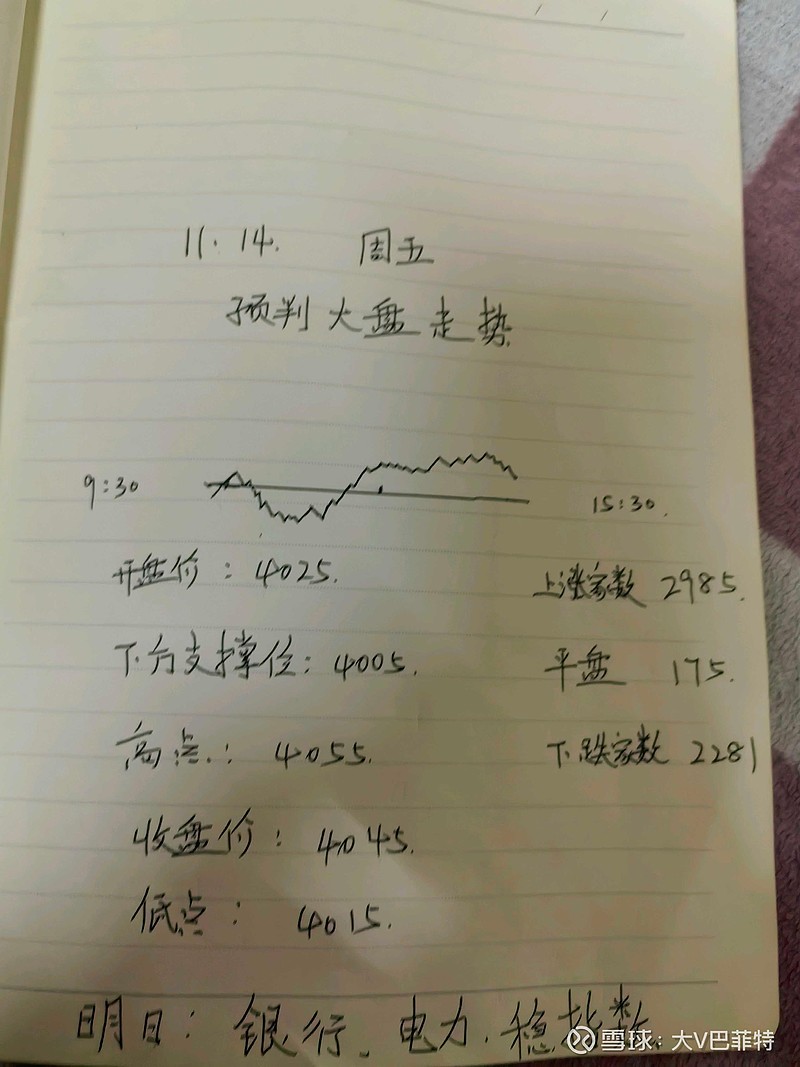 11.14. 周五
预判大盘走势
9:30 15:30.
开盘价：4025. 上涨家数 2985.
下方支撑位：4005. 平盘 175.
高点.：4055. 下跌家数 2281
收盘价：4045.
低点：4015.
明日：银行、电力.稳指数
雪球：大V巴菲特